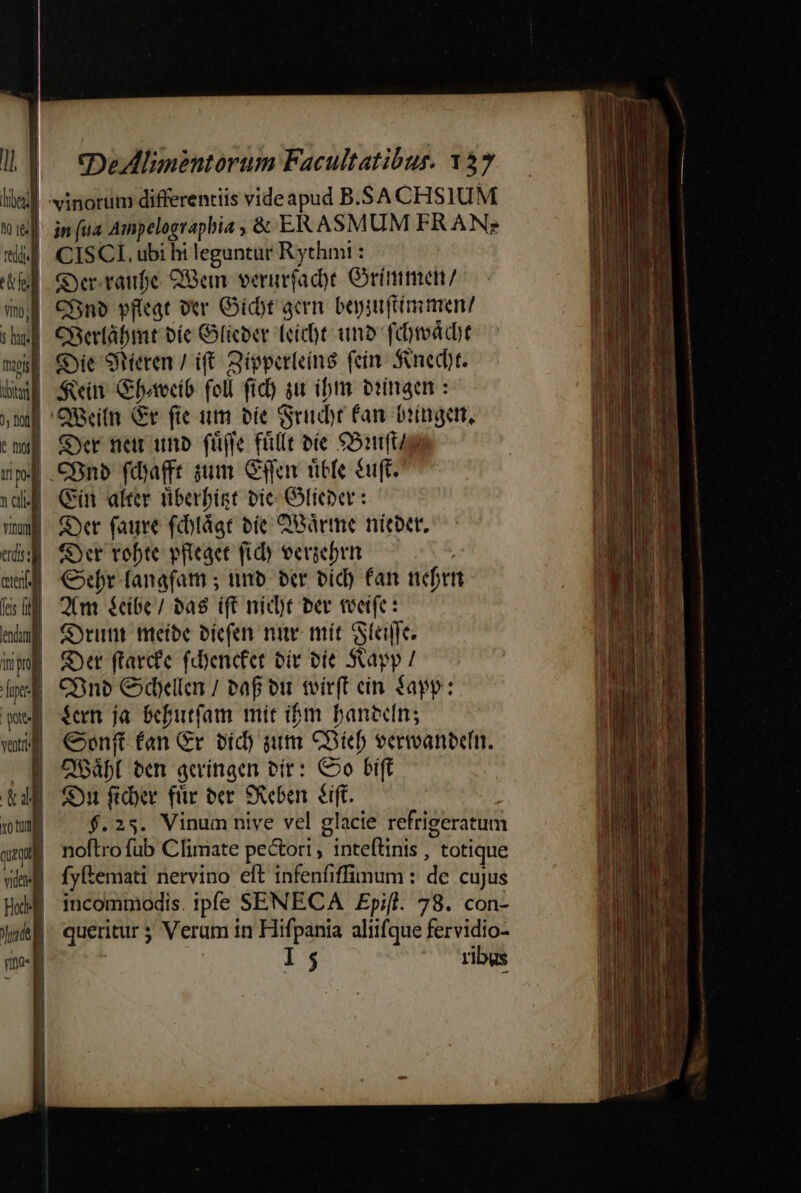 De Alimentorum Facultatibus. 137
vinorum differentiis vide apud B. SACHSIUM
in ſua Ampelographia, & ERASMUM FRAN-
CISCI, ubi hi leguntur Rythmi:
Der rauhe Wein verurſacht Grimmen /
Vnd pflegt der Gicht gern beyzuſtimmen /
Verlaͤhmt die Glieder leicht und ſchwaͤcht
Die Nieren / iſt Zipperleins ſein Knecht.
Kein Ehweib ſoll ſich zu ihm dringen:
Weiln Er ſie um die Frucht kan bringen.
Der neu und ſuͤſſe fuͤllt die Bruſt /
Vnd ſchafft zum Eſſen uͤble Luſt.
Ein alter uͤberhitzt die Glieder:
Der ſaure ſchlaͤgt die Waͤrme nieder.
Der rohte pfleget ſich verzehrn
Sehr langſam; und der dich kan nehrn
Am Leibe / das iſt nicht der weiſe:
Drum meide dieſen nur mit Fleiſſe.
Der ſtarcke ſchencket dir die Kapp /
Vnd Schellen / daß du wirſt ein Lapp:
Lern ja behutſam mit ihm handeln;
Sonſt kan Er dich zum Vieh verwandeln.
Waͤhl den geringen dir: So biſt
Du ſicher fuͤr der Reben Liſt.
§. 25. Vinum nive vel glacie refrigeratum
noſtro ſub Climate pectori, inteſtinis, totique
ſyſtemati nervino eſt infenſiſſimum: de cujus
incommodis ipſe SENECA Epiſt. 78. con-
queritur; Verum in Hiſpania aliiſque fervidio-
I 5 ribus